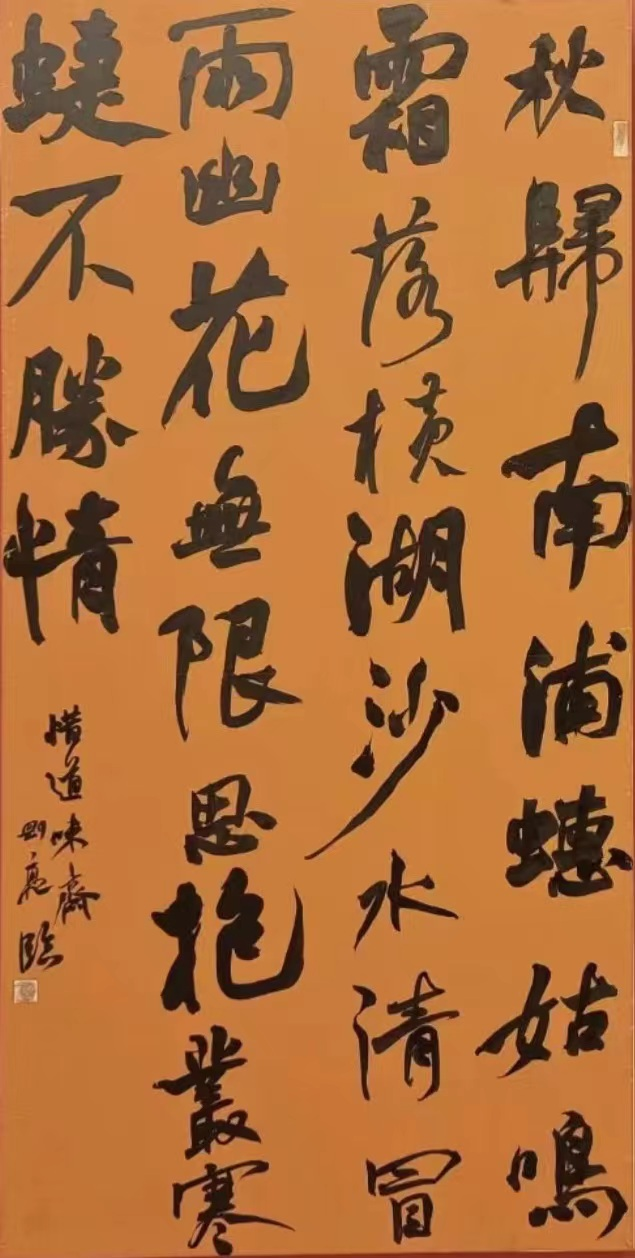 秋歸南浦蟪姑鳴
霜落橫湖沙水清冒
雨幽花無限思抱叢寒
蜨不勝情
惜道味齋
則亮臨